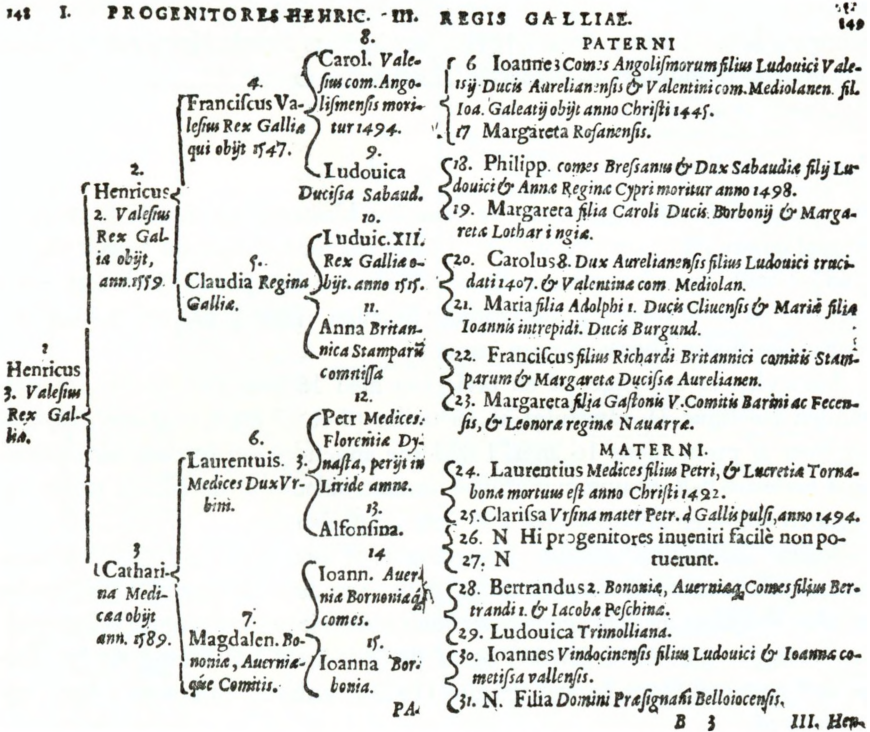 148 I. PROGENITORES HENRIC. III. REGIS GALLIAE. 149
1
Henricus
3. Valesius
Rex Gal-
liæ.
2.
Henricus
2. Valesius
Rex Gal-
iæ obijt,
ann. 1559.
3
Cathari-
na Medi-
cæa obijt
ann. 1589.
4.
Franciscus Va-
lesius Rex Galliæ
qui obijt 1547.
5.
Claudia Regina
Galliæ.
6.
Laurentuis. 3.
Medices Dux Vr-
bini.
7.
Magdalen. Bo-
noniæ, Auerniæ-
que Comitis.
8.
Carol. Vale-
sius com. Ango-
lismensis mori-
tur 1494.
9.
Ludouica
Ducissa Sabaud.
10.
Luduic. XII.
Rex Galliæ o-
bijt. anno 1515.
11.
Anna Britan-
nica Stamparũ
comtissa
12.
Petr Medices.
Florentiæ Dy-
nasta, perijt in
Liride amne.
13.
Alfonsina.
14
Ioann. Auer
niæ Bornoniæq́
comes.
15.
Ioanna Bor-
bonia.
PA-
PATERNI
6 Ioannes Comes Angolismorum filius Ludouici Vale-
sij Ducis Aurelianensis & Valentini com. Mediolanen. fil.
Ioa. Galeatij obijt anno Christi 1445.
17 Margareta Rosanensis.
18. Philipp. comes Bressanus & Dux Sabaudiæ filij Lu-
douici & Annæ Reginæ Cypri moritur anno 1498.
19. Margareta filia Caroli Ducis Borbonij & Marga-
retæ Lotharingiæ.
20. Carolus 8. Dux Aurelianensis filius Ludouici truci-
dati 1407. & Valentinæ com. Mediolan.
21. Maria filia Adolphi 1. Ducis Cliuensis & Mariæ filiæ
Ioannis intrepidi. Ducis Burgund.
22. Franciscus filius Richardi Britannici comitis Stam-
parum & Margaretæ Ducissæ Aurelianen.
23. Margareta filia Gastonis V. Comitis Barini ac Fecen-
sis, & Leonoræ reginæ Nauarræ.
MATERNI.
24. Laurentius Medices filius Petri, & Lucretiæ Torna-
bonæ mortuus est anno Christi 1492.
25. Clarissa Vrsina mater Petr. à Gallis pulsi, anno 1494.
26. N Hi progenitores inueniri facilè non po-
27. N tuerunt.
28. Bertrandus 2. Bononiæ, Auerniæq; Comes filius Ber-
trandi 1. & Iacobæ Peschinæ.
29. Ludouica Trimolliana.
30. Ioannes Vindocinensis filius Ludouici & Ioannæ co-
metissa vallensis.
31. N. Filia Domini Præsignani Belloiocensis.
B 3 III. Hen-